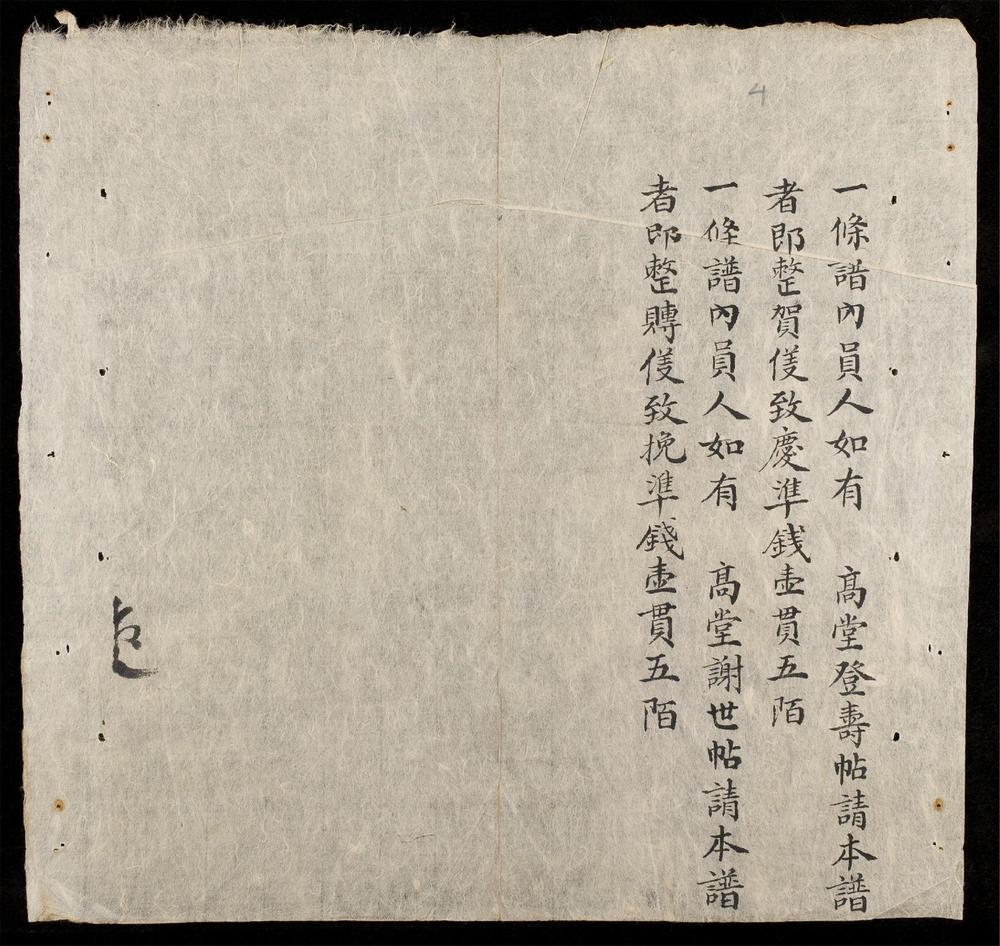 一條譜內員人如有　髙堂登壽帖請本譜
者即整賀儀致慶準銭壶貫五陌
一條譜內員人如有　髙堂謝世帖請本譜
者即整賻儀致挽準錢壶貫五陌
4